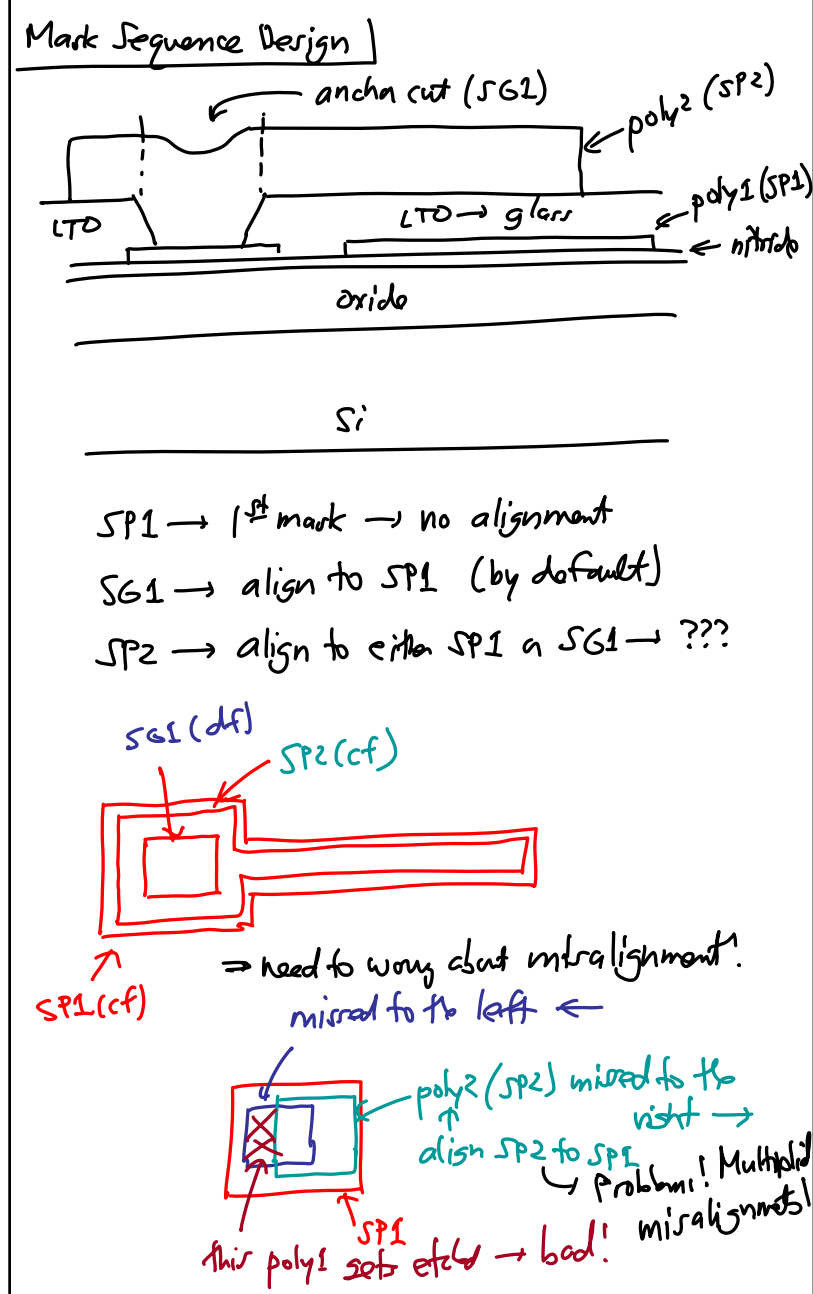 Mask Sequence Design
anchor cut (SG1)
poly2 (SP2)
poly1 (SP1)
LTO
LTO → glass
← nitride
oxide
Si
SP1 → 1st mask → no alignment
SG1 → align to SP1 (by default)
SP2 → align to either SP1 or SG1 → ???
SG1 (df)
SP2 (cf)
SP1 (cf)
⇒ need to worry about misalignment!
missed to the left ←
poly2 (SP2) missed to the
right →
align SP2 to SP1
Problem! Multiplied
misalignments!
SP1
this poly1 gets etched → bad!